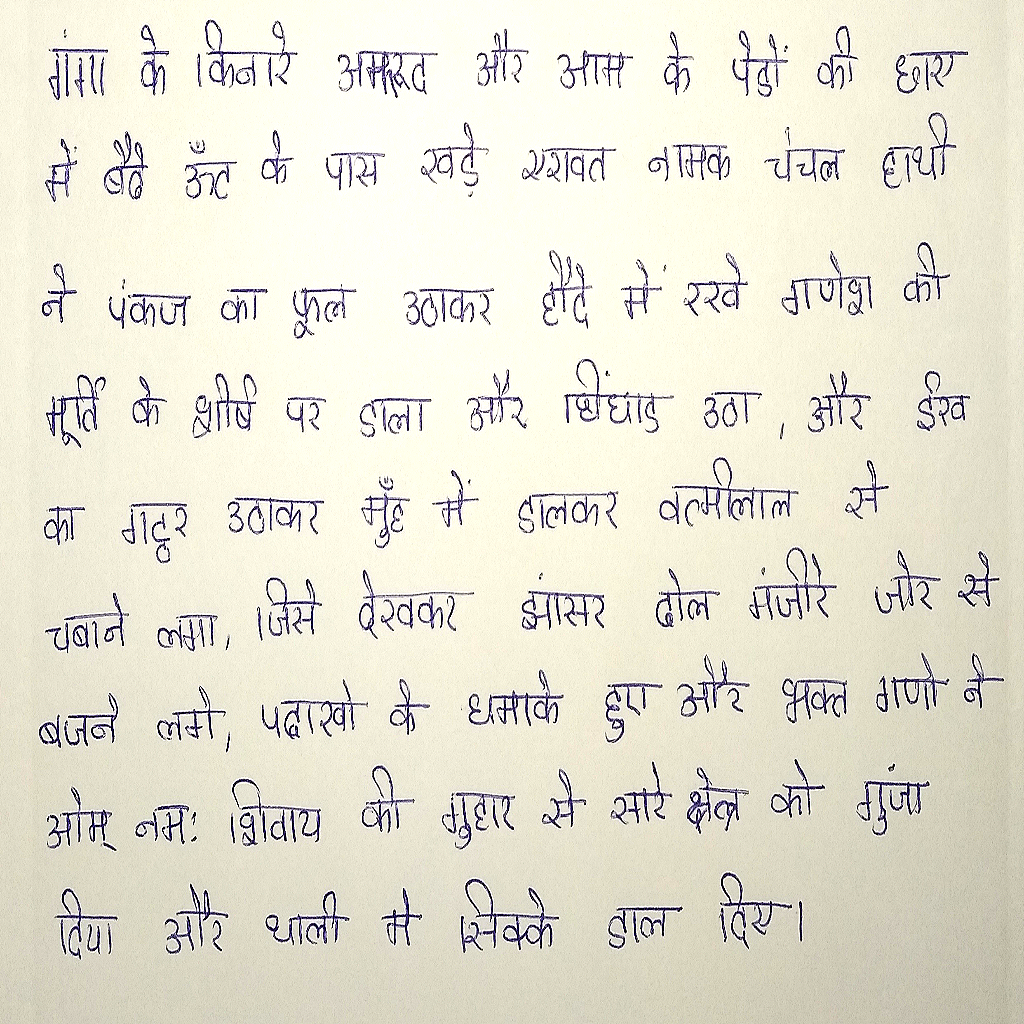 गंगा के किनारे अमरूद और आम के पेडों की छाए
में बैठे ऊँट के पास खड़े एरावत नामक चंचल हाथी
ने पंकज का फूल उठाकर हौदे में रखे गणेश की
मूर्ति के शीर्ष पर डाला और चिंघाड उठा , और ईख
का गट्ठर उठाकर मुँह में डालकर वत्मीलाल से
चबाने लगा, जिसे देखकर झांसर ढोल मंजीरे जोर से
बजने लगे, पटाखो के धमाके हुए और भक्त गणो ने
ओम् नमः शिवाय की गुहार से सारे क्षेत्र को गुंजा
दिया और थाली मे सिक्के डाल दिए।